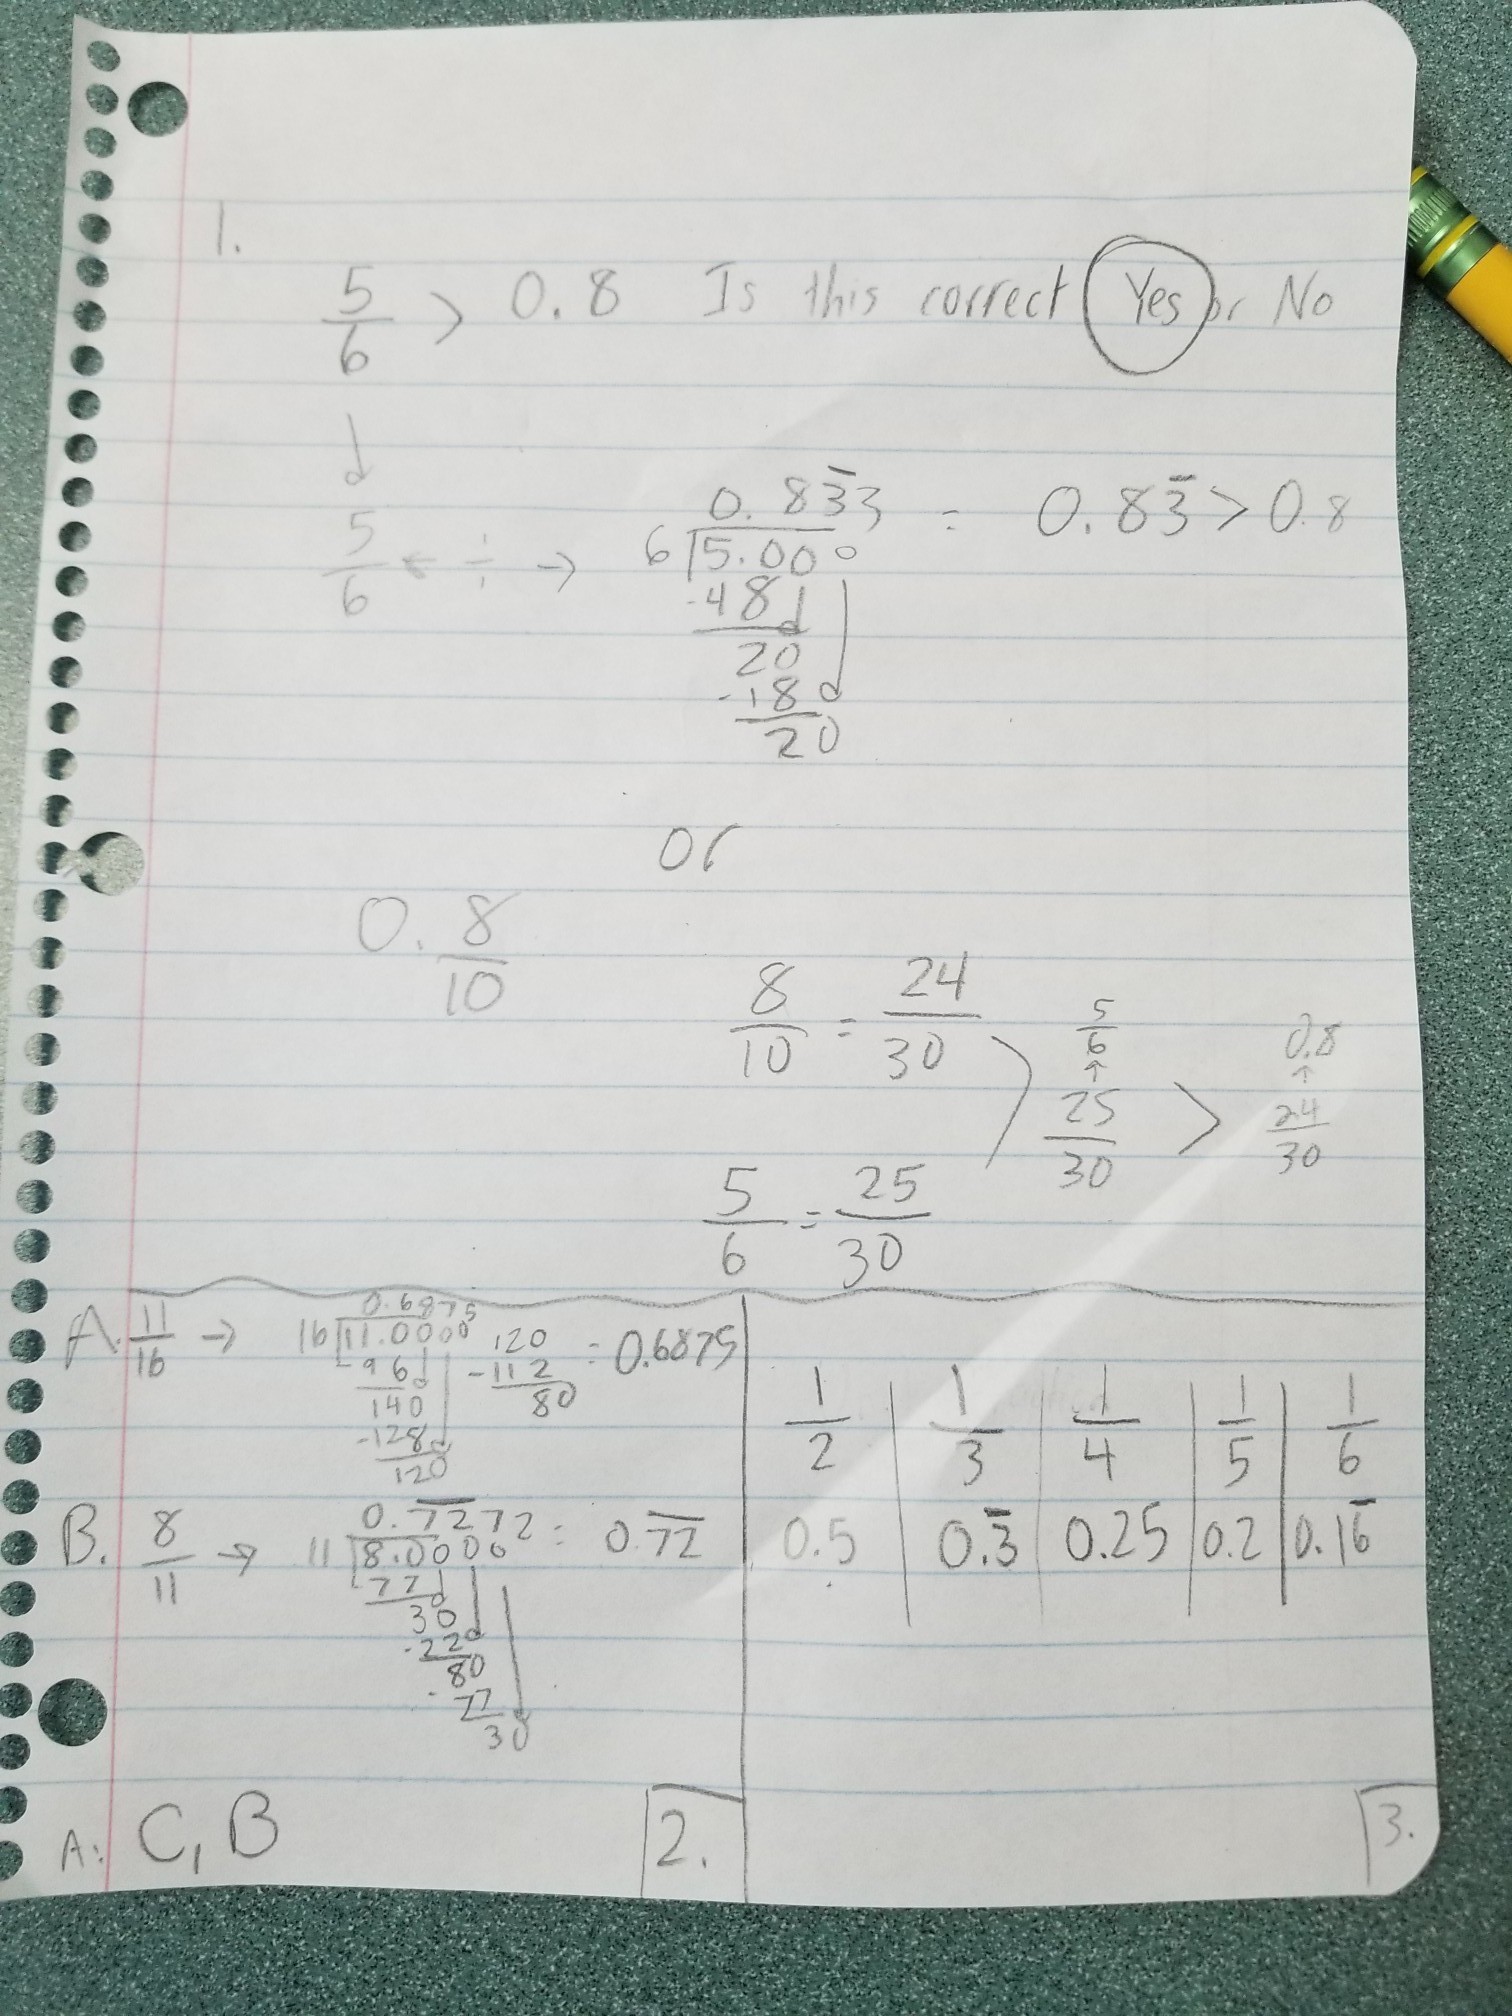 1.
5/6 > 0.8 Is this correct Yes or No
5/6 ← ÷ → 6 5.000 0.83̅3 = 0.83̅ > 0.8
-48
20
-18
20
or
0.8/10
8/10 = 24/30
5/6 0.8
↑ ↑
25/30 > 24/30
5/6 = 25/30
A. 11/16 → 16 11.0000 0.6875 = 0.6875
-96
140
-128
120
120
-112
80
B. 8/11 → 11 8.0000 0.7̅2̅72 = 0.7̅2̅
-77
30
-22
80
-77
30
A: C, B
2.
1/2 1/3 1/4 1/5 1/6
0.5 0.3̅ 0.25 0.2 0.16̅
3.